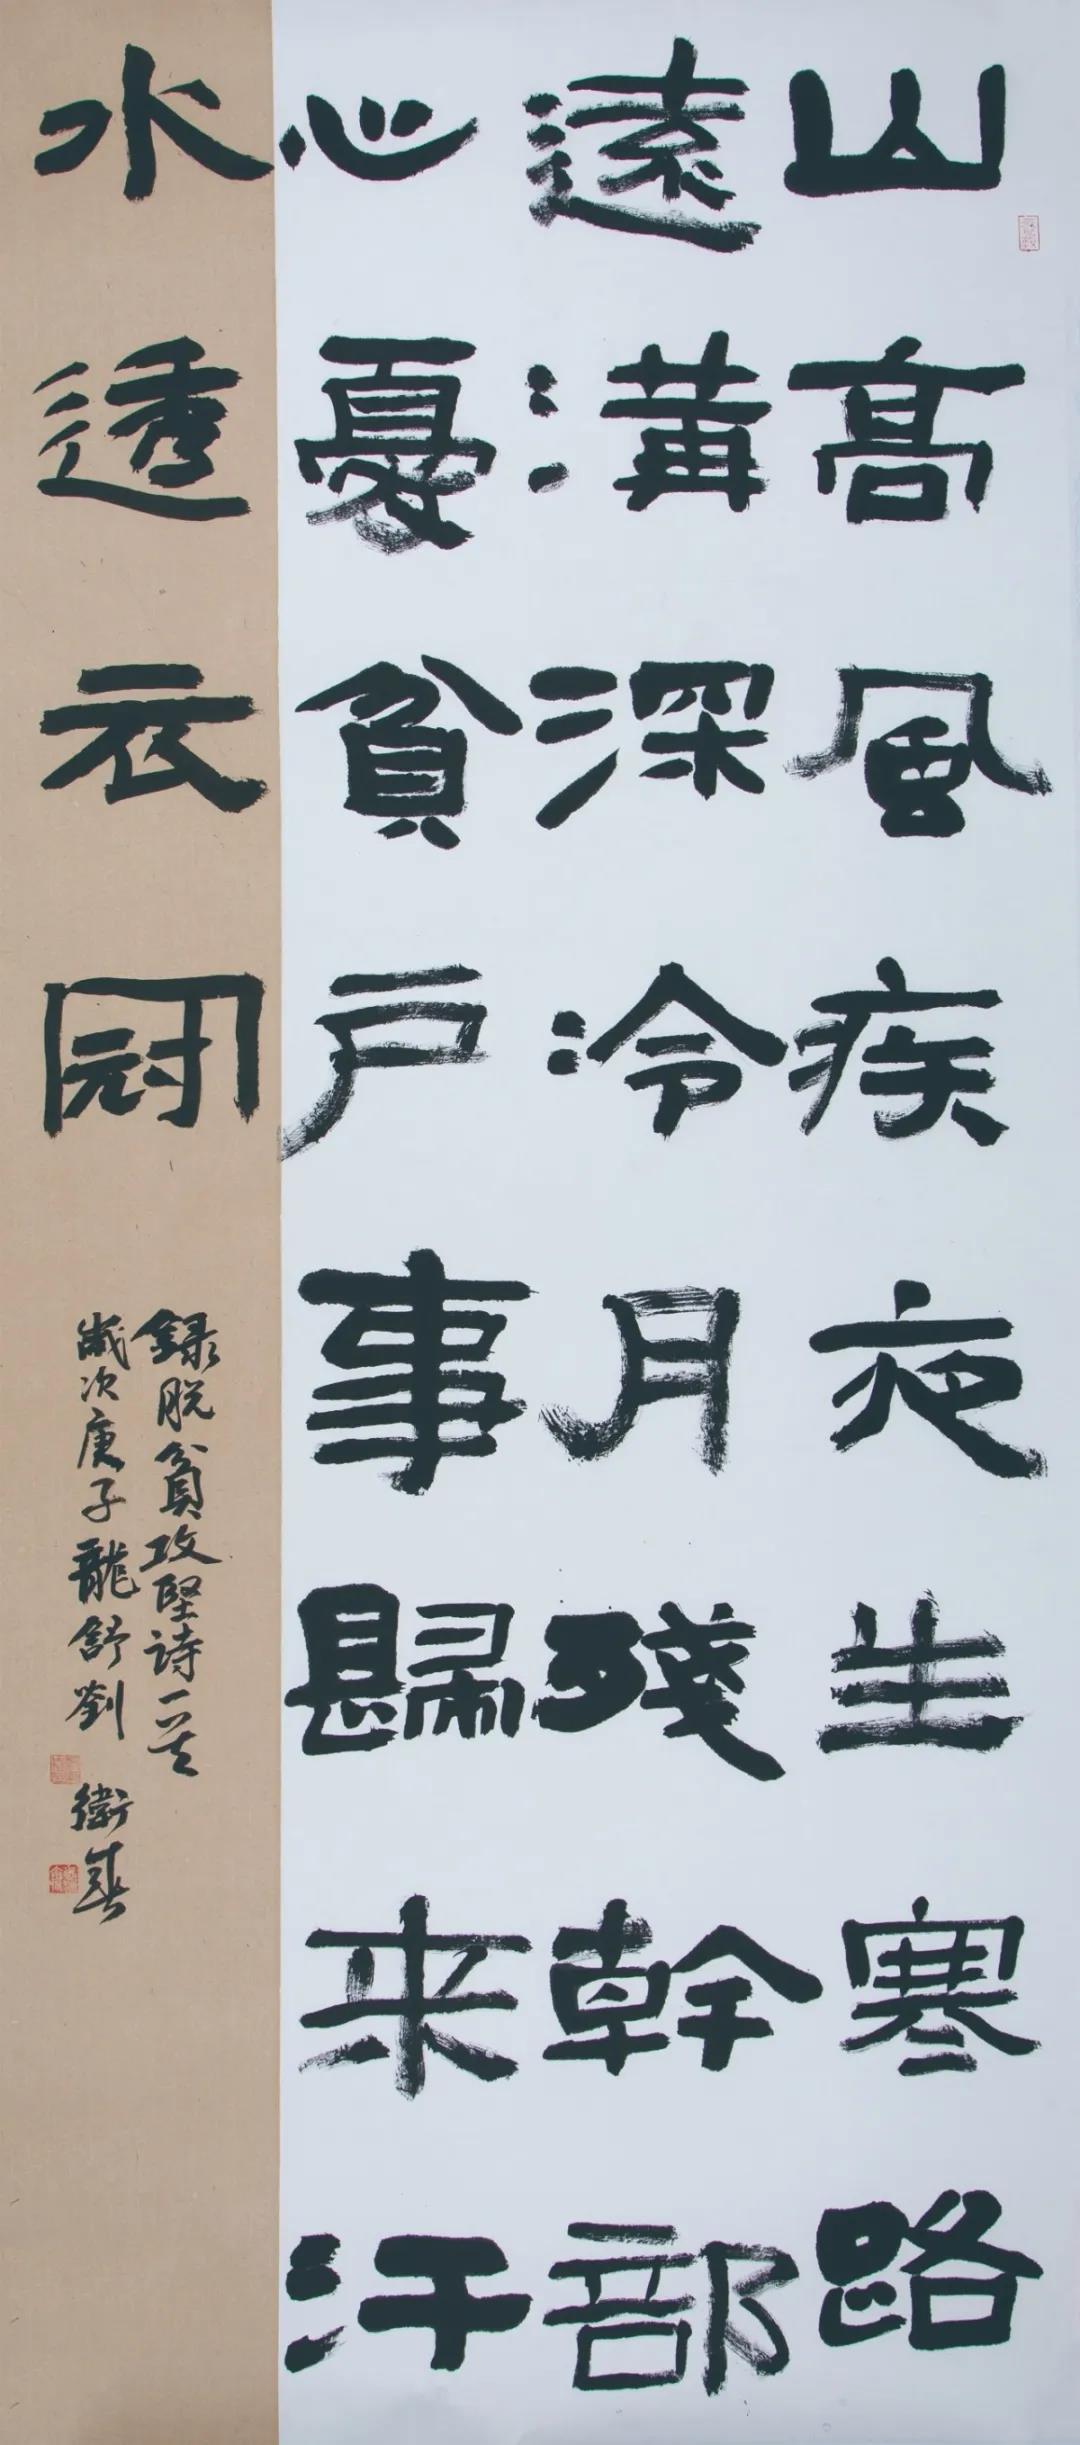 山高風疾夜生寒路
遠溝深冷月殘幹部
心憂貧户事歸来汗
水透衣冠
録脱貧攻堅詩一首
歲次庚子龍舒劉衛東